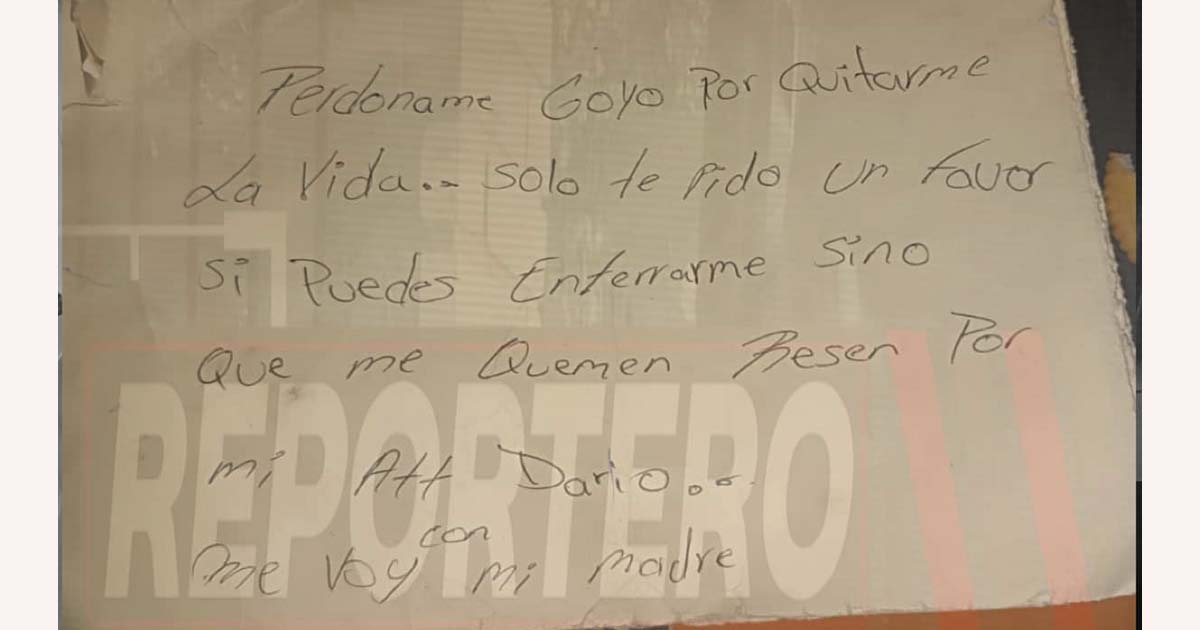 Perdoname Goyo Por Quitarme
La Vida.- Solo te Pido un favor
Si Puedes Enterrarme Sino
Que me Quemen Resen Por
mi Att Dario.-
me voy con mi madre
REPORTERO